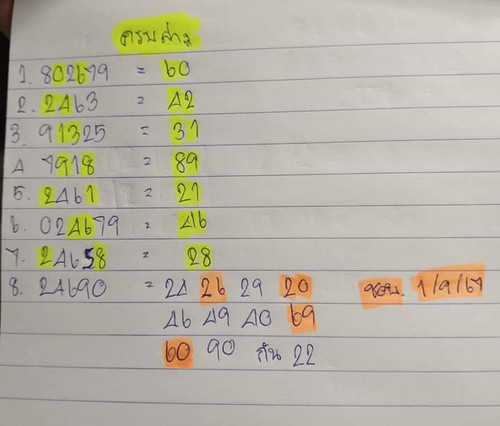 ครบล่าง
1. 802679 = 60
2. 2463 = 42
3. 91325 = 31
4 7918 = 89
5. 2461 = 21
6. 024679 = 46
7. 24658 = 28
8. 24690 = 24 26 29 20 ชอบ. 1/9/67
46 49 40 69
60 90 กัน 22